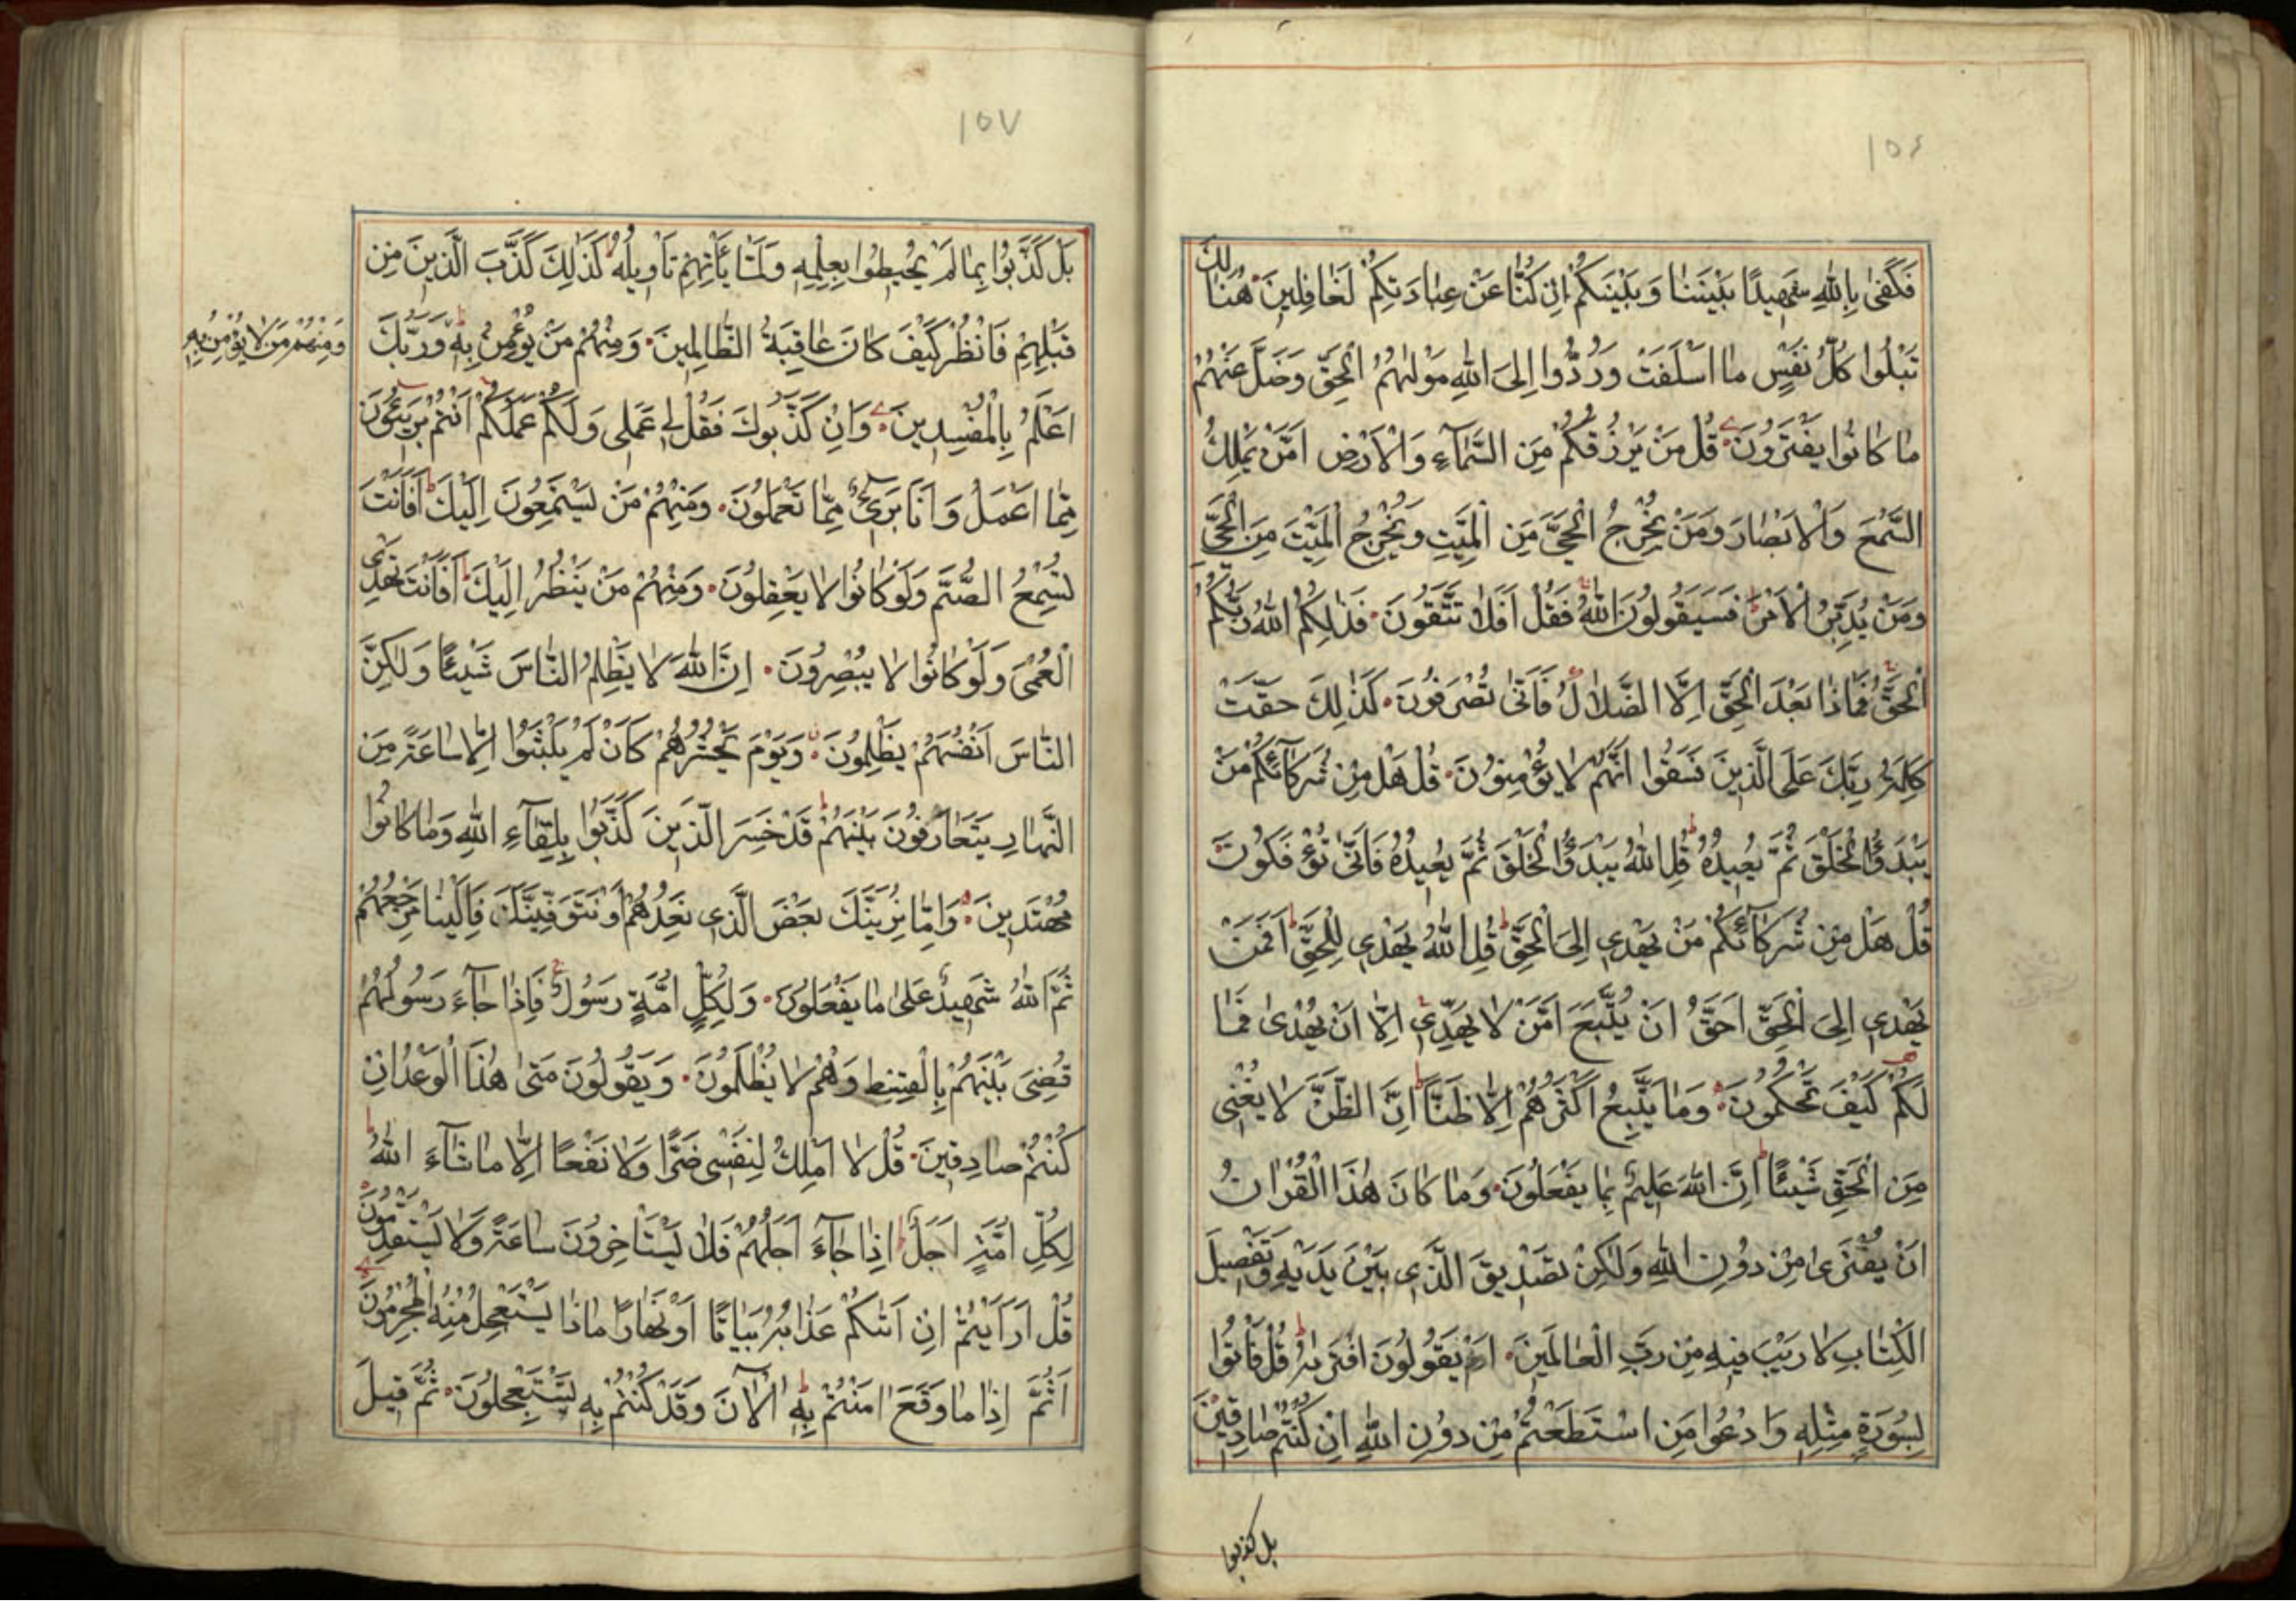 ١٥٦
فَكَفىٰ بِاللهِ شَهيدًا بَيْنَنَا وَبَيْنَكُمْ اِنْ كُنَّا عَنْ عِبَادَتِكُمْ لَغَافِلِينَ هُنَالِكَ
تَبْلُوا كُلُّ نَفْسٍ مَا اَسْلَفَتْ وَرُدُّوا اِلَى اللهِ مَوْلٰيهُمُ الْحَقِّ وَضَلَّ عَنْهُمْ
مَا كَانُوا يَفْتَرُونَ قُلْ مَنْ يَرْزُقُكُمْ مِنَ السَّمَآءِ وَالْاَرْضِ اَمَّنْ يَمْلِكُ
السَّمْعَ وَالْاَبْصَارَ وَمَنْ يُخْرِجُ الْحَيَّ مِنَ الْمَيِّتِ وَيُخْرِجُ الْمَيِّتَ مِنَ الْحَيِّ
وَمَنْ يُدَبِّرُ الْاَمْرَ فَسَيَقُولُونَ اللهُ فَقُلْ اَفَلَا تَتَّقُونَ فَذٰلِكُمُ اللهُ رَبُّكُمُ
الْحَقُّ فَمَاذَا بَعْدَ الْحَقِّ اِلَّا الضَّلَالُ فَاَنّٰى تُصْرَفُونَ كَذٰلِكَ حَقَّتْ
كَلِمَةُ رَبِّكَ عَلَى الَّذِينَ فَسَقُوا اَنَّهُمْ لَا يُؤْمِنُونَ قُلْ هَلْ مِنْ شُرَكَآئِكُمْ مَنْ
يَبْدَؤُا الْخَلْقَ ثُمَّ يُعِيدُهُ قُلِ اللهُ يَبْدَؤُا الْخَلْقَ ثُمَّ يُعِيدُهُ فَاَنّٰى تُؤْفَكُونَ
قُلْ هَلْ مِنْ شُرَكَآئِكُمْ مَنْ يَهْدِي اِلَى الْحَقِّ قُلِ اللهُ يَهْدِي لِلْحَقِّ اَفَمَنْ
يَهْدِي اِلَى الْحَقِّ اَحَقُّ اَنْ يُتَّبَعَ اَمَّنْ لَا يَهِدِّي اِلَّا اَنْ يُهْدٰى فَمَا
لَكُمْ كَيْفَ تَحْكُمُونَ وَمَا يَتَّبِعُ اَكْثَرُهُمْ اِلَّا ظَنًّا اِنَّ الظَّنَّ لَا يُغْنِي
مِنَ الْحَقِّ شَيْئًا اِنَّ اللهَ عَلِيمٌ بِمَا يَفْعَلُونَ وَمَا كَانَ هٰذَا الْقُرْاٰنُ
اَنْ يُفْتَرٰى مِنْ دُونِ اللهِ وَلٰكِنْ تَصْدِيقَ الَّذِي بَيْنَ يَدَيْهِ وَتَفْصِيلَ
الْكِتَابِ لَا رَيْبَ فِيهِ مِنْ رَبِّ الْعَالَمِينَ اَمْ يَقُولُونَ افْتَرٰيهُ قُلْ فَاْتُوا
بِسُورَةٍ مِثْلِهِ وَادْعُوا مَنِ اسْتَطَعْتُمْ مِنْ دُونِ اللهِ اِنْ كُنْتُمْ صَادِقِينَ
بل كذبوا
١٥٧
بَلْ كَذَّبُوا بِمَا لَمْ يُحِيطُوا بِعِلْمِهِ وَلَمَّا يَأْتِهِمْ تَاْوِيلُهُ كَذَالِكَ كَذَّبَ الَّذِينَ مِنْ
قَبْلِهِمْ فَانْظُرْ كَيْفَ كَانَ عَاقِبَةُ الظَّالِمِينَ وَمِنْهُمْ مَنْ يُؤْمِنُ بِهِ وَرَبُّكَ
وَمِنْهُمْ مَنْ لَا يُؤْمِنُ بِهِ
اَعْلَمُ بِالْمُفْسِدِينَ وَاِنْ كَذَّبُوكَ فَقُلْ لِي عَمَلِي وَلَكُمْ عَمَلُكُمْ اَنْتُمْ بَرِيئُونَ
مِمَّا اَعْمَلُ وَاَنَا بَرِيءٌ مِمَّا تَعْمَلُونَ وَمِنْهُمْ مَنْ يَسْتَمِعُونَ اِلَيْكَ اَفَاَنْتَ
تُسْمِعُ الصُّمَّ وَلَوْ كَانُوا لَا يَعْقِلُونَ وَمِنْهُمْ مَنْ يَنْظُرُ اِلَيْكَ اَفَاَنْتَ تَهْدِي
الْعُمْيَ وَلَوْ كَانُوا لَا يُبْصِرُونَ اِنَّ اللهَ لَا يَظْلِمُ النَّاسَ شَيْئًا وَلٰكِنَّ
النَّاسَ اَنْفُسَهُمْ يَظْلِمُونَ وَيَوْمَ يَحْشُرُهُمْ كَاَنْ لَمْ يَلْبَثُوا اِلَّا سَاعَةً مِنَ
النَّهَارِ يَتَعَارَفُونَ بَيْنَهُمْ قَدْ خَسِرَ الَّذِينَ كَذَّبُوا بِلِقَآءِ اللهِ وَمَا كَانُوا
مُهْتَدِينَ وَاِمَّا نُرِيَنَّكَ بَعْضَ الَّذِي نَعِدُهُمْ اَوْ نَتَوَفَّيَنَّكَ فَاِلَيْنَا مَرْجِعُهُمْ
ثُمَّ اللهُ شَهِيدٌ عَلىٰ مَا يَفْعَلُونَ وَلِكُلِّ اُمَّةٍ رَسُولٌ فَاِذَا جَآءَ رَسُولُهُمْ
قُضِيَ بَيْنَهُمْ بِالْقِسْطِ وَهُمْ لَا يُظْلَمُونَ وَيَقُولُونَ مَتىٰ هٰذَا الْوَعْدُ اِنْ
كُنْتُمْ صَادِقِينَ قُلْ لَا اَمْلِكُ لِنَفْسِي ضَرًّا وَلَا نَفْعًا اِلَّا مَا شَآءَ اللهُ
لِكُلِّ اُمَّةٍ اَجَلٌ اِذَا جَآءَ اَجَلُهُمْ فَلَا يَسْتَاْخِرُونَ سَاعَةً وَلَا يَسْتَقْدِمُونَ
قُلْ اَرَاَيْتُمْ اِنْ اَتٰيكُمْ عَذَابُهُ بَيَاتًا اَوْ نَهَارًا مَاذَا يَسْتَعْجِلُ مِنْهُ الْمُجْرِمُونَ
اَثُمَّ اِذَا مَا وَقَعَ اٰمَنْتُمْ بِهِ اٰلْاٰنَ وَقَدْ كُنْتُمْ بِهِ تَسْتَعْجِلُونَ ثُمَّ قِيلَ